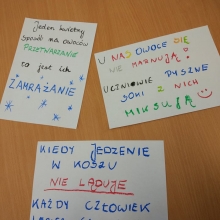 Jeden świetny
sposób na owoców
PRZETWARZANIE
to jest ich
ZAMRAŻANIE
U NAS OWOCE SIĘ
NIE MARNUJĄ!
UCZNIOWIE PYSZNE
SOKI Z NICH
MIKSUJĄ
KIEDY JEDZENIE
W KOSZU
NIE LĄDUJE
KAŻDY CZŁOWIEK